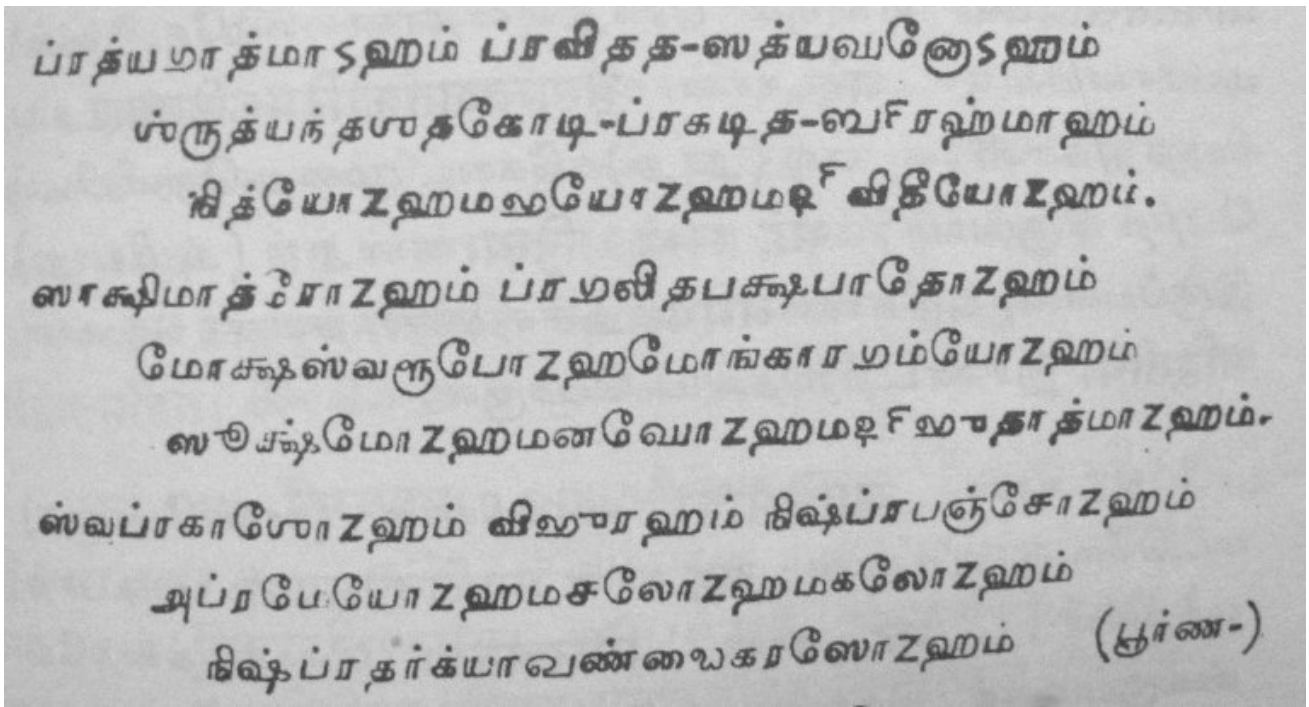 ப்ரத்ய𑌗𑌾த்மாSஹம் ப்ரவிதத-ஸத்ய𑌘னோSஹம்
ஶ்ருத்யந்தஶதகோடி-ப்ரகடித-𑌬𑍍ரஹ்மாஹம்
நித்யோZஹம𑌭யோZஹம𑌦𑍍விதீயோZஹம்.
ஸாக்ஷிமாத்ரோZஹம் ப்ர𑌗லிதபக்ஷபாதோZஹம்
மோக்ஷஸ்வரூபோZஹமோங்கார𑌗ம்யோZஹம்
ஸூக்ஷ்மோZஹமன𑌘𑍋Zஹம𑌦𑍍𑌭𑍁தாத்மாZஹம்.
ஸ்வப்ரகாஶோZஹம் வி𑌭𑍁ரஹம் நிஷ்ப்ரபஞ்சோZஹம்
அப்ரமேயோZஹமசலோZஹமகலோZஹம்
நிஷ்ப்ரதர்க்யா𑌖ண்𑌡𑍈கரஸோZஹம் (பூர்ண-)